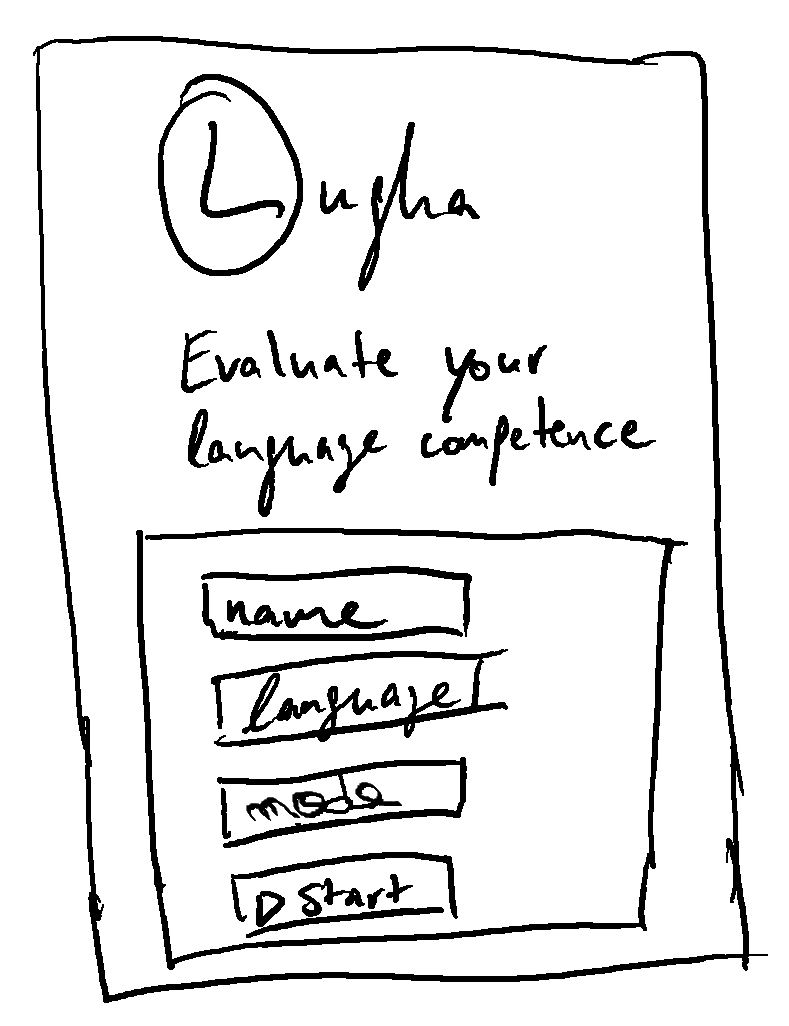 Lugha
Evaluate your
language competence
name
language
mode
Start